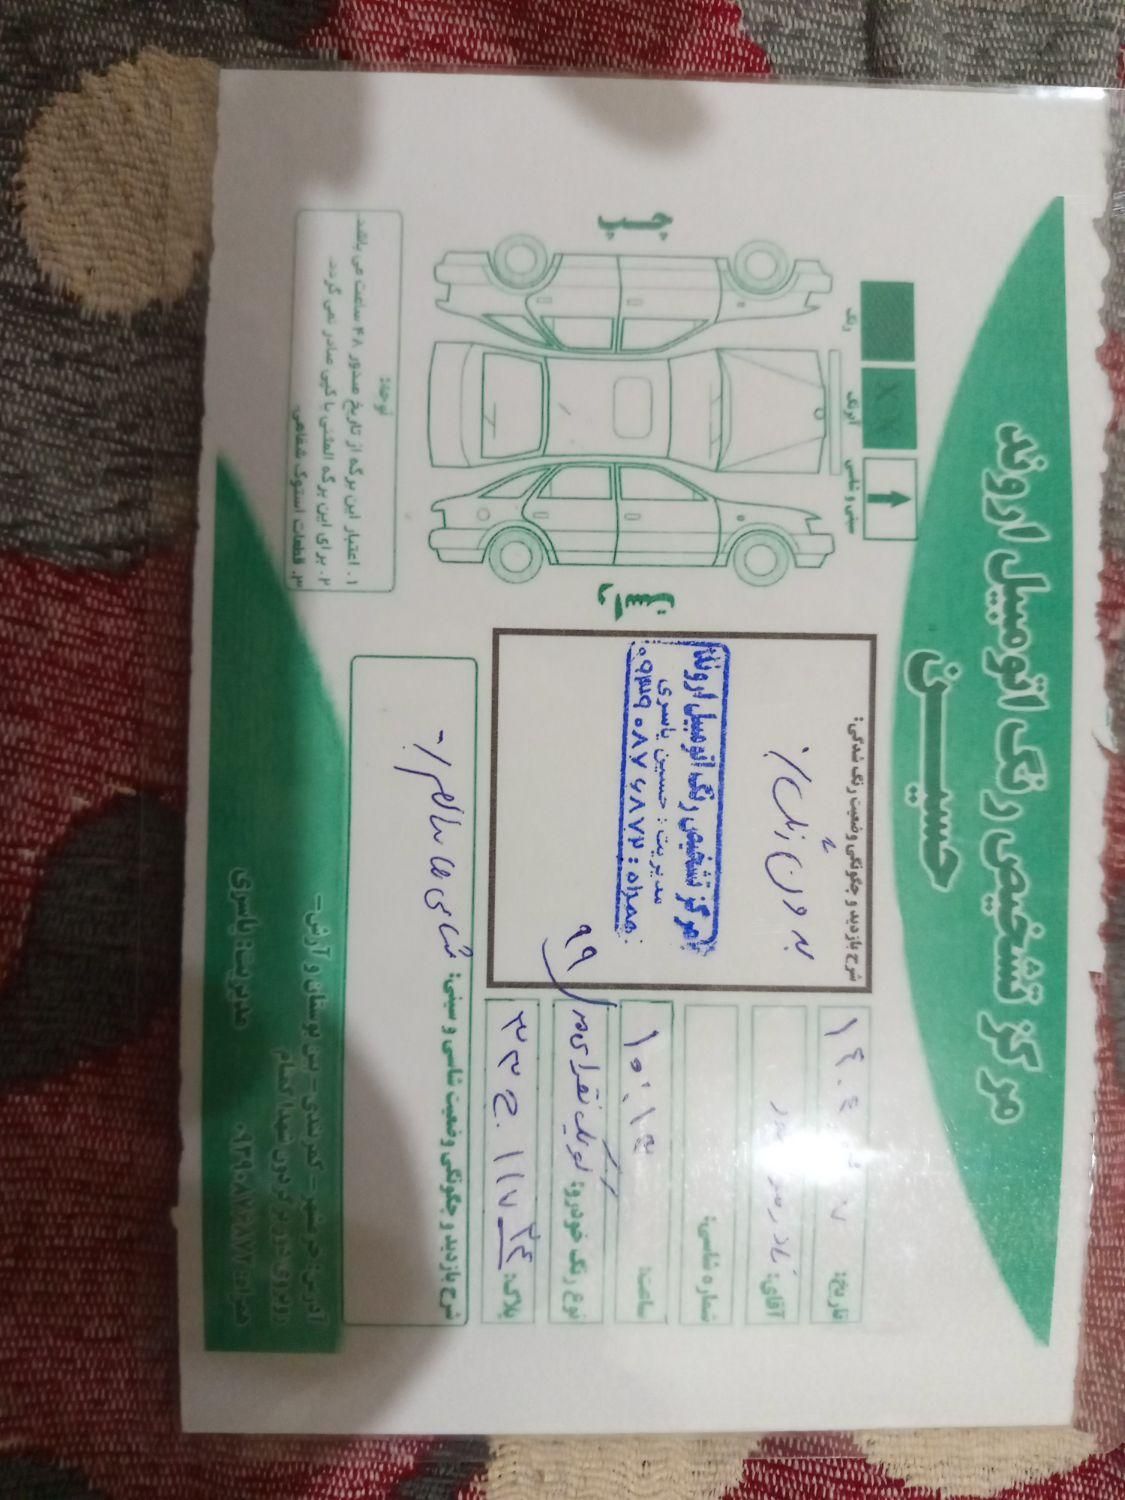 مرکز تشخیص رنگ اتومبیل اروند
حسیــــن
تاریخ:
آقای: نادر
شماره شاسی:
ساعت: ۱۰:۱۳
نوع رنگ خودرو: کوییک نقره ای مدل ۹۹
پلاک: ۳۳ ج ۱۱۷ ۲۴
شرح بازدید و چگونگی وضعیت رنگ شدگی:
بدون رنگ٪
مرکز تشخیص رنگ اتومبیل اروند
مدیریت: حسین یاسری
همراه: ۰۹۳۹۰۸۷۶۸۷۲
شرح بازدید و چگونگی وضعیت شاسی و سینی: شاسی ها سالم/-
رنگ
آبرنگ
سینی و شاسی
چپ
راست
توجه:
۱. اعتبار این برگه از تاریخ صدور ۴۸ ساعت می باشد.
۲. برای این برگه المثنی یا کپی صادر نمی گردد.
۳. قطعات استوک شفاهی.
آدرس: خرمشهر - کمربندی - بین بوستان و آرش -
مدیریت: یاسری